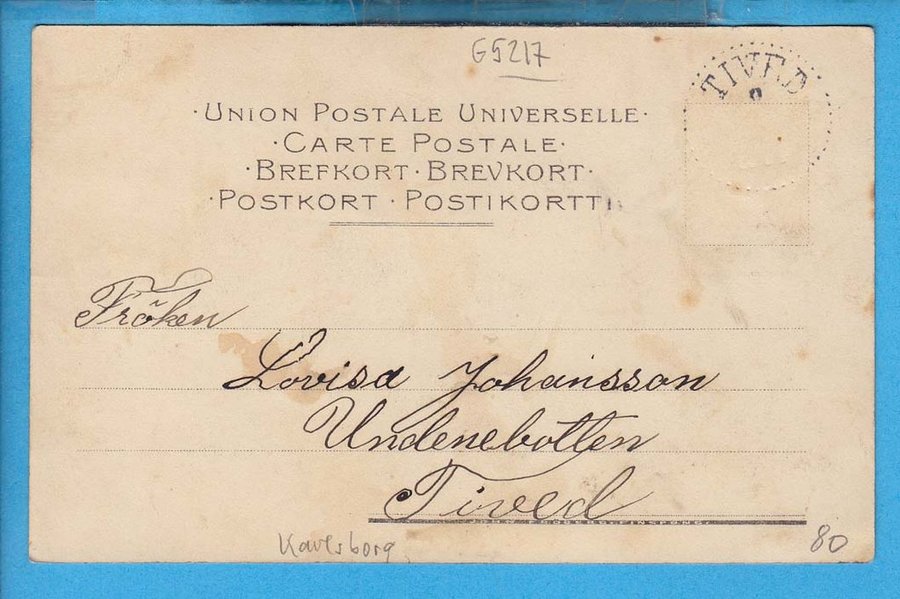 G5217
TIVED
·UNION POSTALE UNIVERSELLE·
·CARTE POSTALE·
·BREFKORT·BREVKORT·
·POSTKORT·POSTIKORTTI
Fröken
Lovisa Johansson
Undenebotten
Tived
80